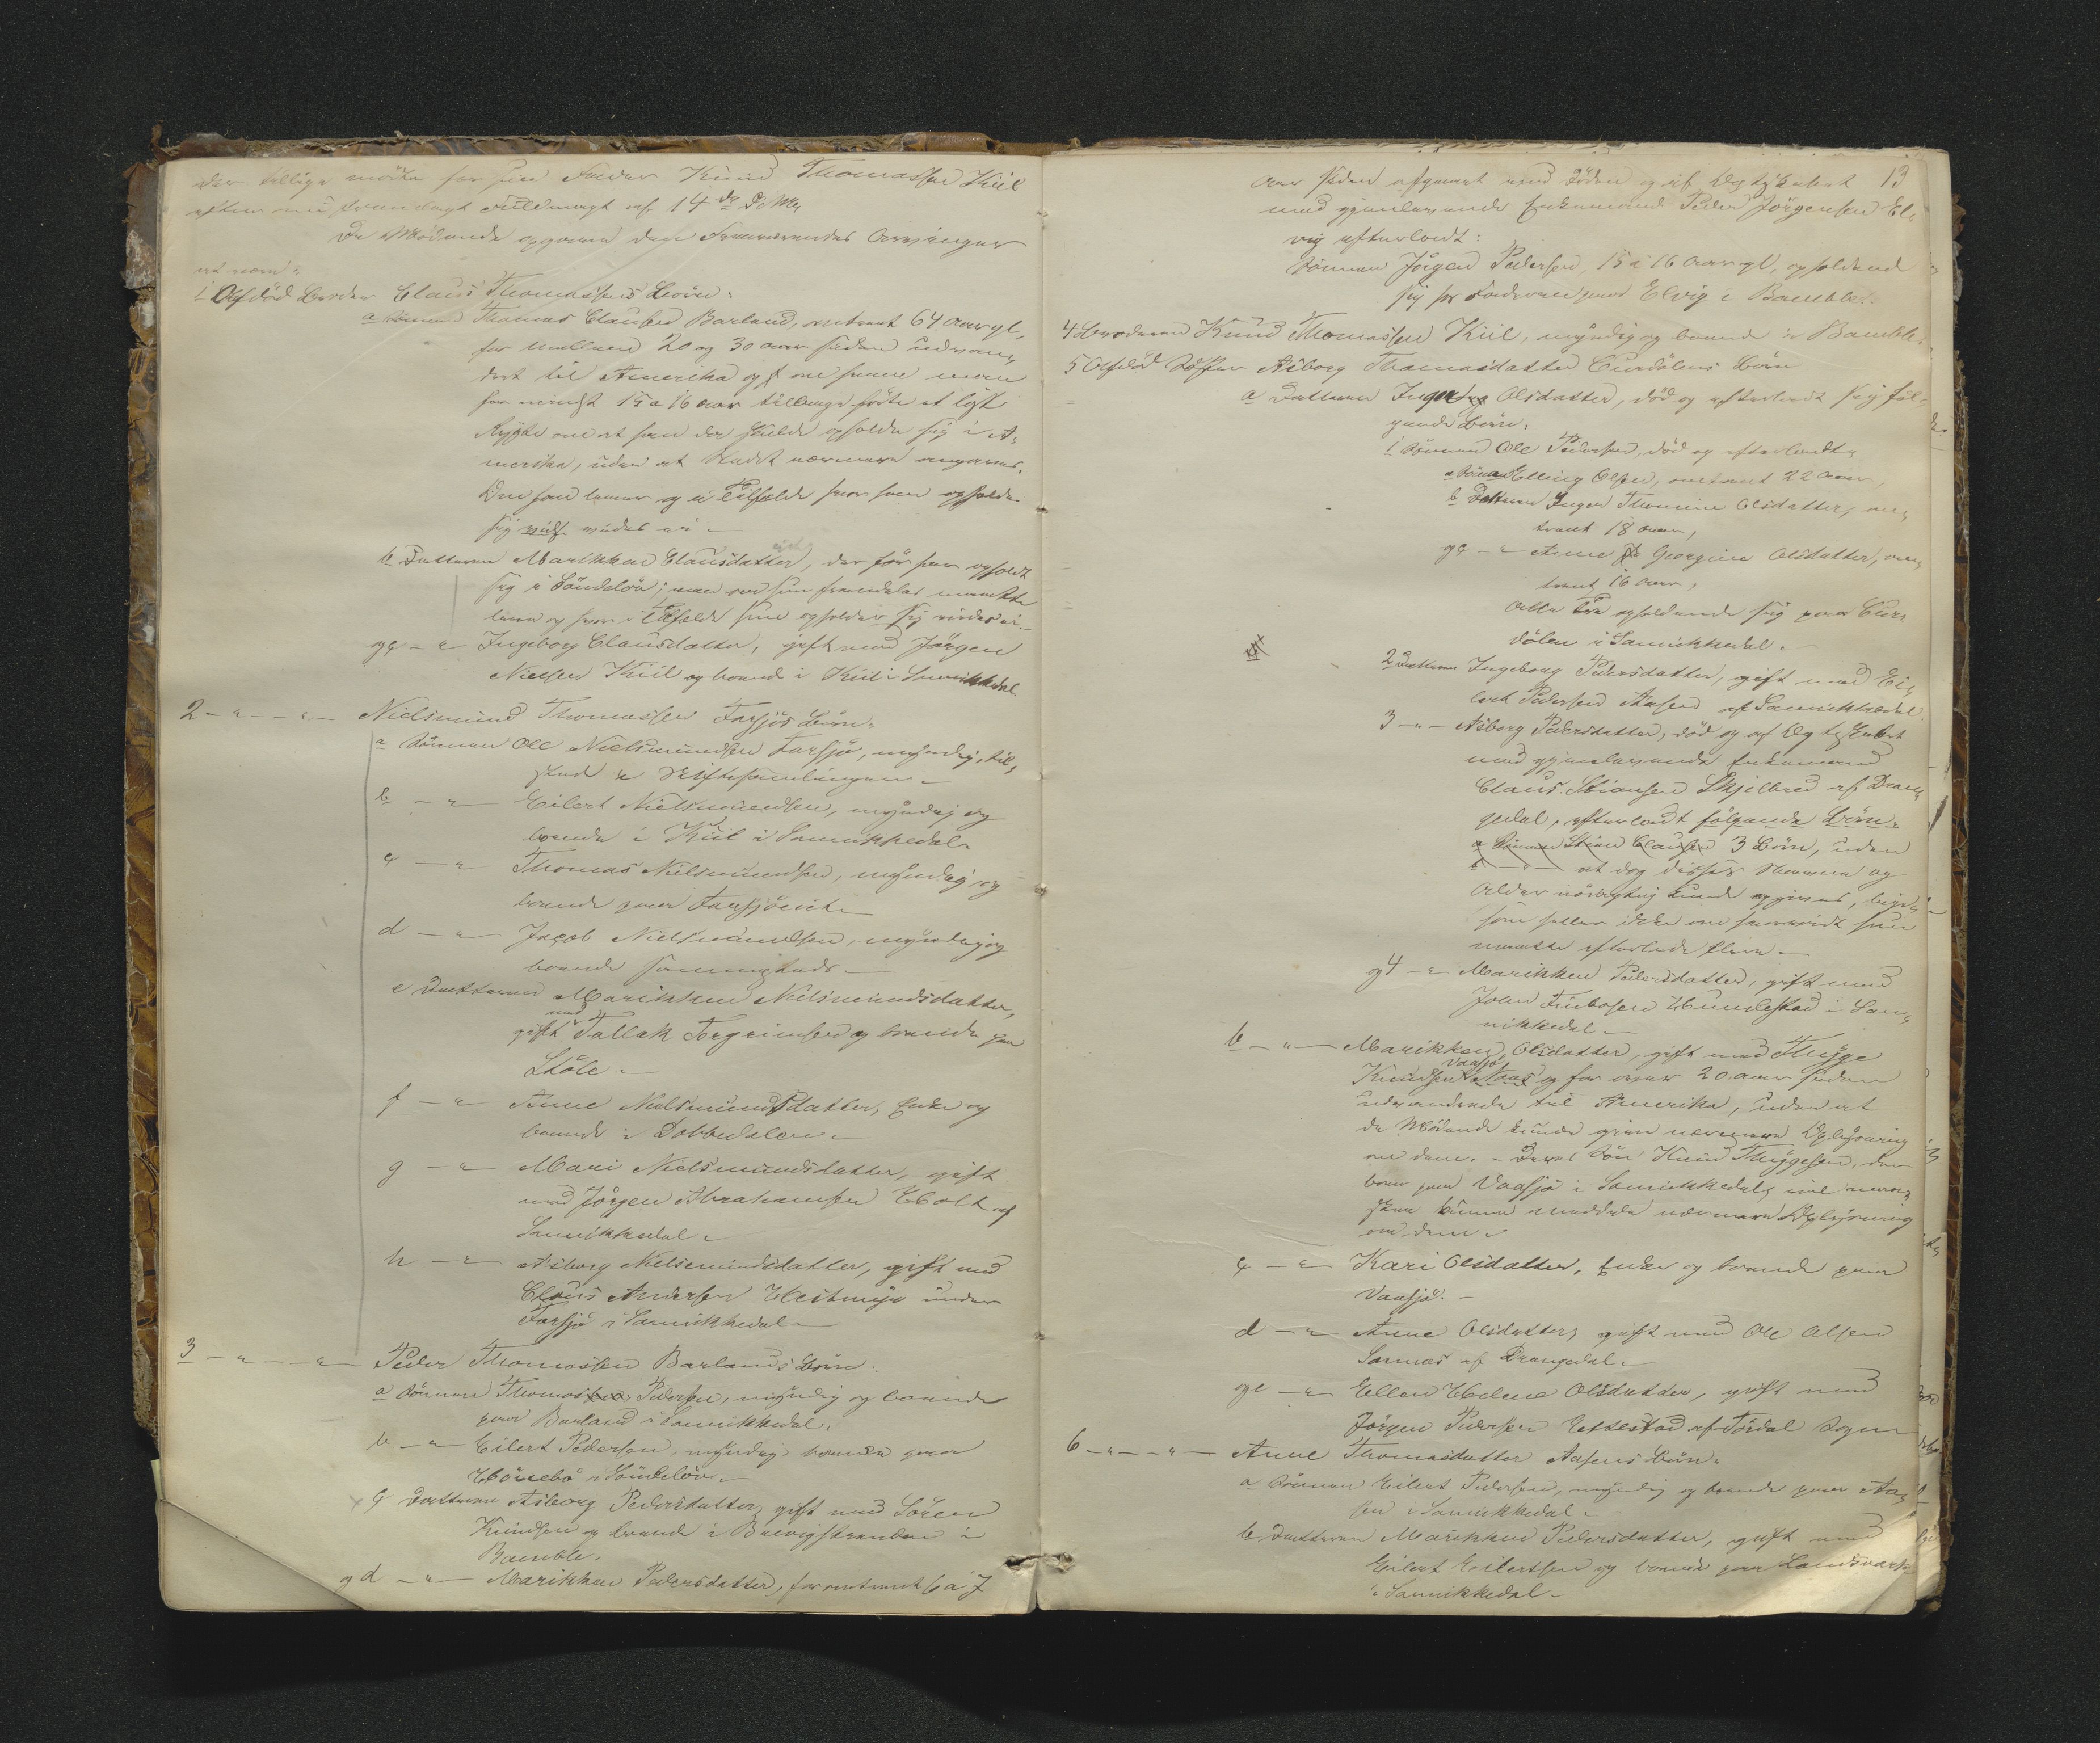 der tillige mödte for sin Fader Knud Thomassen Kiil
efter fremlagt Fuldmagt af 14de d. M.
De Mödende opgave den Arvinger
at være:
1 Afdöd Broder Claus Thomassens Börn:
a Sönnen Thomas Clausen Barland, omtrent 64 Aar gl,
for mellem 20 og 30 Aar siden udvan-
dret til Amerika og om hvem man
for mindst 15 a 16 Aar tilbage hörte et löst
Rygte om at han der skulde opholde sig i A-
merika, uden at Stedet nærmere angaves.
Om han lever og i Tilfælde hvor han opholder
sig vides ei.
b Datteren Marikken Clausdatter, der för har opholdt
sig i Söndelöv; men om hun fremdeles maatte
leve og hvor i Tilfælde hun opholder sig vides ei.
og c - " - Ingeborg Clausdatter, gift med Jörgen
Nielsen Kiil og boende i Kiil i Sannikkedal.
2 - " - - " - Nielsmund Thomassen Farsjös Börn:
a Sönnen Ole Nielsmundsen Farsjö, myndig, til-
stede i Skiftesamlingen.
b - " - Eilert Nielsmundsen, myndig og
boende i Kiil i Sannikkedal.
c - " - Thomas Nielsmundsen, myndig og
boende paa Farsjöeiet.
d - " - Jacob Nielsmundsen, myndig og
boende sammesteds.
e Datteren Marikken Nielsmundsdatter,
gift med Tallak Torgrimsen og boende paa
Stöle.
f - " - Anne Nielsmundsdatter, Enke og
boende i Dobbedalen.
g - " - Mari Nielsmundsdatter, gift
med Jörgen Abrahamsen Holt af
Sannikkedal.
h - " - Asborg Nielsmundsdatter, gift med
Claus Andersen Heitmyr under
Farsjö i Sannikkedal.
3 - " - - " - Peder Thomassen Barlands Börn:
a Sönnen Thomas Pedersen, myndig og boende
paa Barland i Sannikkedal.
b - " - Eilert Pedersen, myndig, boende paa
Hönebö i Söndelöv.
c Datteren Asborg Pedersdatter, gift med Sören
Knudsen og boende i Brevigstranden i
Bamble.
og d - " - Marikken Pedersdatter, for omtrent 6 a 7
13
Aar siden afgaaet ved Döden og af Ægteskabet
med gjenlevende Enkemand Peder Jörgensen El-
vig efterladt:
Sönnen Jörgen Pedersen, 15 a 16 Aar gl, opholdende
sig hos Faderen paa Elvig i Bamble.
4 Broderen Knud Thomassen Kiil, myndig og boende i Bamble.
5 Afdöd Söster Asborg Thomasdatter Curdölens Börn
a Datteren Inger Olsdatter, död og efterladt sig föl-
gende Börn:
1 Sönnen Ole Pedersen, död og efterladt:
a Sönnen Elling Olsen, omtrent 22 Aar,
b Datteren Inger Thomine Olsdatter, om-
trent 18 Aar,
og c - " - Anne Georgine Olsdatter, om-
trent 16 Aar,
Alle Tre opholdende sig paa
dölen i Sannikkedal.
2 Datteren Ingeborg Pedersdatter, gift med Ei-
lert Pedersen Aasen af Sannikkedal.
3 - " - Asborg Pedersdatter, död og af Ægteskabet
med gjenlevende Enkemand
Claus Stiansen Skjelbred af Dran-
gedal, efterladt fölgende Börn:
a Sönnen Stian Clausen 3 Börn, uden
b - " - at dog disses Navne og
Alder nöiagtig kunde opgives, lige-
som heller ikke om hvorvidt hun
maatte efterlade flere.
og 4 - " - Marikken Pedersdatter, gift med
John Finbosen Humlestad i San-
nikkedal.
b - " - Marikken Olsdatter, gift med Thyge
Knudsen Vaasjö og for over 20 Aar siden
udvandrede til Amerika, uden at
de Mödende kunde give nærmere Oplysning
om dem. - Deres Sön Knud Thygesen, der
bor paa Vaasjö i Sannikkedal, vil maa-
skee kunne meddele nærmere Oplysning
om dem.
c - " - Kari Olsdatter, Enke og boende paa
Vaasjö. -
d - " - Anne Olsdatter, gift med Ole Olsen
Sannes af Drangedal.
og e - " - Ellen Helene Olsdatter, gift med
Jörgen Pedersen Ettestad af Tördal Sogn
6 - " - - " - Anne Thomasdatter Aasens Börn:
a Sönnen Eilert Pedersen, myndig og boende paa Aa-
sen i Sannikkedal.
b Datteren Marikken Pedersdatter, gift med
Eilert Eilertsen og boende paa Landsværk
i Sannikkedal.